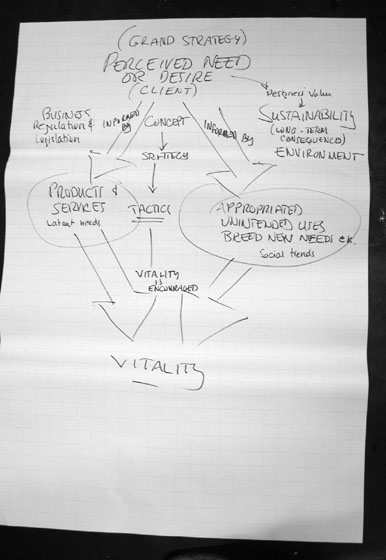 (GRAND STRATEGY)
PERCEIVED NEED
OR DESIRE
(CLIENT)
BUSINESS
Regulation &
Legislation
INFORMED BY
CONCEPT
INFORMED BY
SUSTAINABILITY
(LONG-TERM
CONSEQUENCES)
ENVIRONMENT
STRATEGY
PRODUCTS &
SERVICES
Latent needs
TACTICS
APPROPRIATED
UNINTENDED USES
BREED NEW NEEDS etc.
Social trends
VITALITY
IS
ENCOURAGED
VITALITY